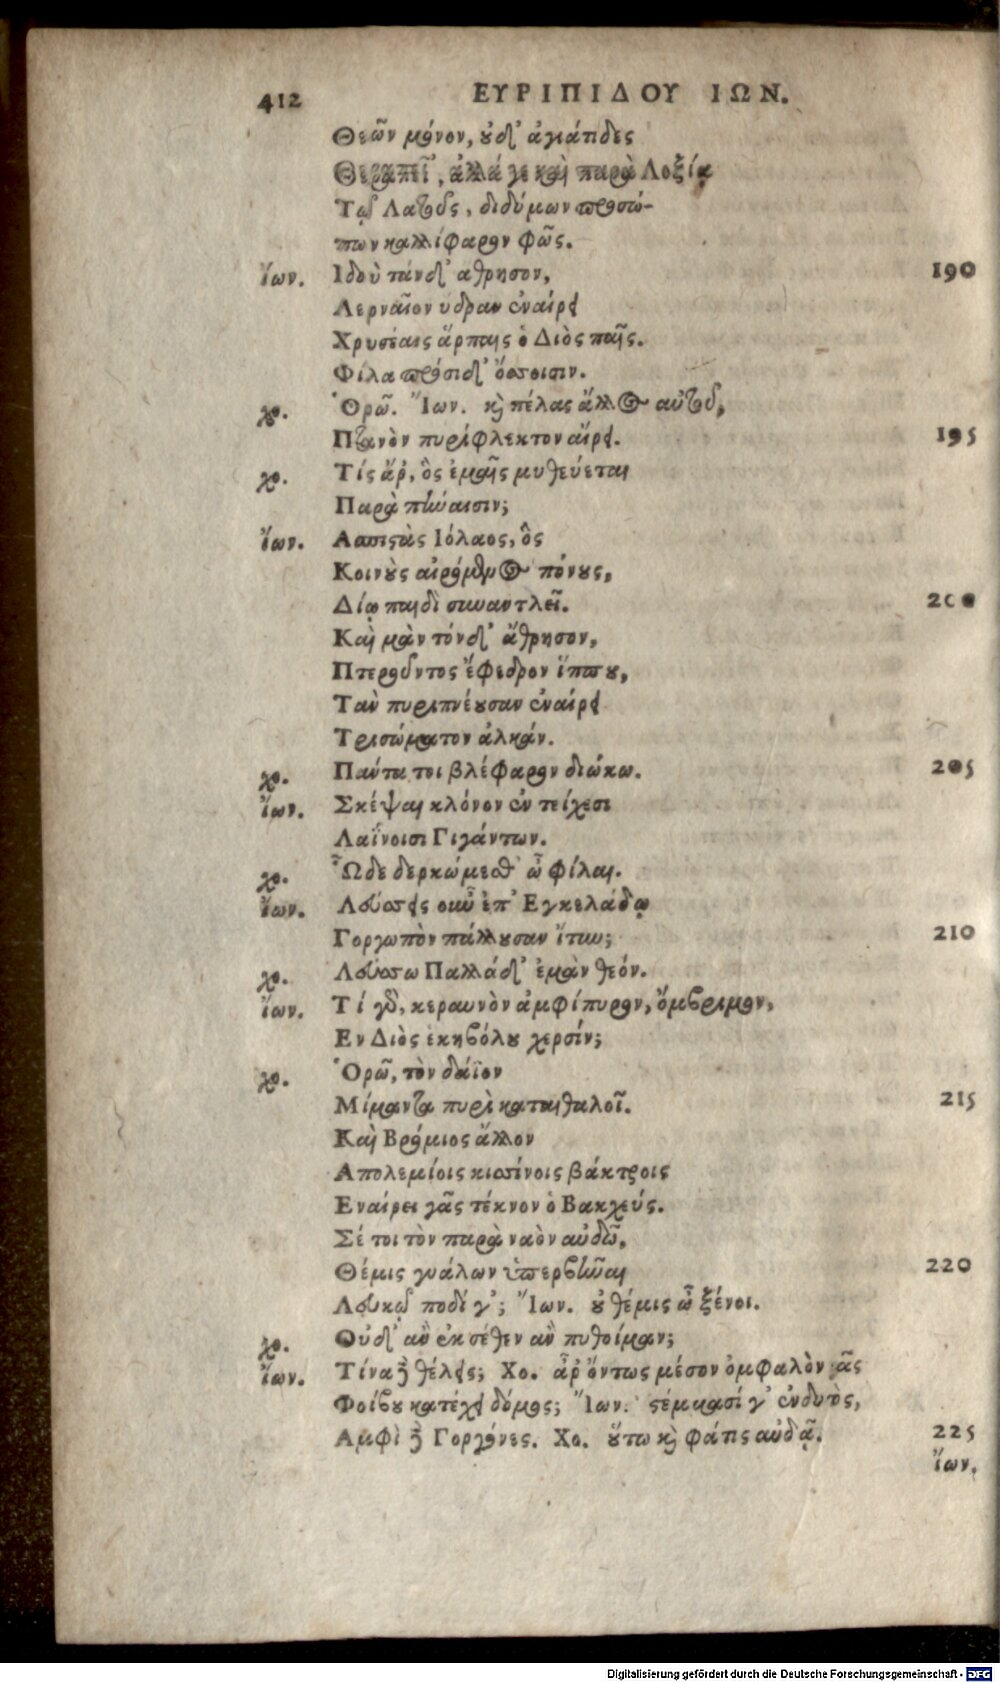 412 ΕΥΡΙΠΙΔΟΥ ΙΩΝ.
Θεῶν μόνον, ȣ̓δ' ἀγιάτιδες
Θεραπεῖ, ἀλλά γε καὶ παρὰ Λοξίᾳ
Τῷ Λατοῦς, διδύμων προσώ-
πων καλλίφαρον φῶς.
Ἴων. Ιδοὺ τάνδ' αθρησον, 190
Λερναῖον ὑδραν ἐναίρει
Χρυσέαις ἅρπαις ὁ Διὸς παῖς.
Φίλα πρόσιδ' ὄσσοισιν.
χο. Ὁρῶ. Ἴων. κὶ πέλας ἄλλος αὐτοῦ,
Πτανὸν πυρίφλεκτον αἴρει. 195
χο. Τίς ἄρ', ὃς ἐμαῖς μυθεύεται
Παρὰ πήναισιν;
Ἴων. Ασπιςὰς Ιόλαος, ὃς
Κοινȣ̀ς αἰρόμενος πόνȣς,
Δίῳ παιδὶ συναντλεῖ. 200
Καὶ μὰν τόνδ' ἄθρησον,
Πτεροῦντος ἔφεδρον ἵππȣ,
Τὰν πυριπνέȣσαν ἐναίρει
Τρισώματον ἀλκάν.
χο. Πάντα τοι βλέφαρον διώκω. 205
Ἴων. Σκέψαι κλόνον ἐν τείχεσι
Λαΐνοισι Γιγάντων.
χο. Ὧδε δερκώμεσθ' ὦ φίλαι.
Ἴων. Λεύσεις οὖν ἐπ' Εγκελάδῳ
Γοργωπὸν πάλλȣσαν ἴτυν; 210
χο. Λεύσσω Παλλάδ' ἐμὰν θεόν.
Ἴων. Τί γὰρ, κεραυνὸν ἀμφίπυρον, ὄμβριμον,
Εν Διὸς ἑκηβόλȣ χερσίν;
χο. Ὁρῶ, τὸν δάϊον
Μίμαντα πυρὶ καταιθαλοῖ. 215
Καὶ Βρόμιος ἄλλον
Απολεμίοις κισσίνοις βάκτροις
Εναίρει γᾶς τέκνον ὁ Βακχεύς.
Σέ τοι τὸν παρὰ ναὸν αὐδῶ,
Θέμις γυάλων ὑπερβῆναι 220
Λευκῷ ποδί γ'; Ἴων. ȣ̓ θέμις ὦ ξένοι.
χο. Οὐδ' ἂν ἐκ σέθεν ἂν πυθοίμαν;
Ἴων. Τίνα δὲ θέλεις; Χο. ἆρ' ὄντως μέσον ὀμφαλὸν γᾶς
Φοίβȣ κατέχει δόμος; Ἴων. ςέμμασί γ' ἐνδυτὸς,
Αμφὶ δὲ Γοργόνες. Χο. ȣ̔́τω κὶ φάτις αὐδᾷ. 225
Ἴων.
Digitalisierung gefördert durch die Deutsche Forschungsgemeinschaft - DFG